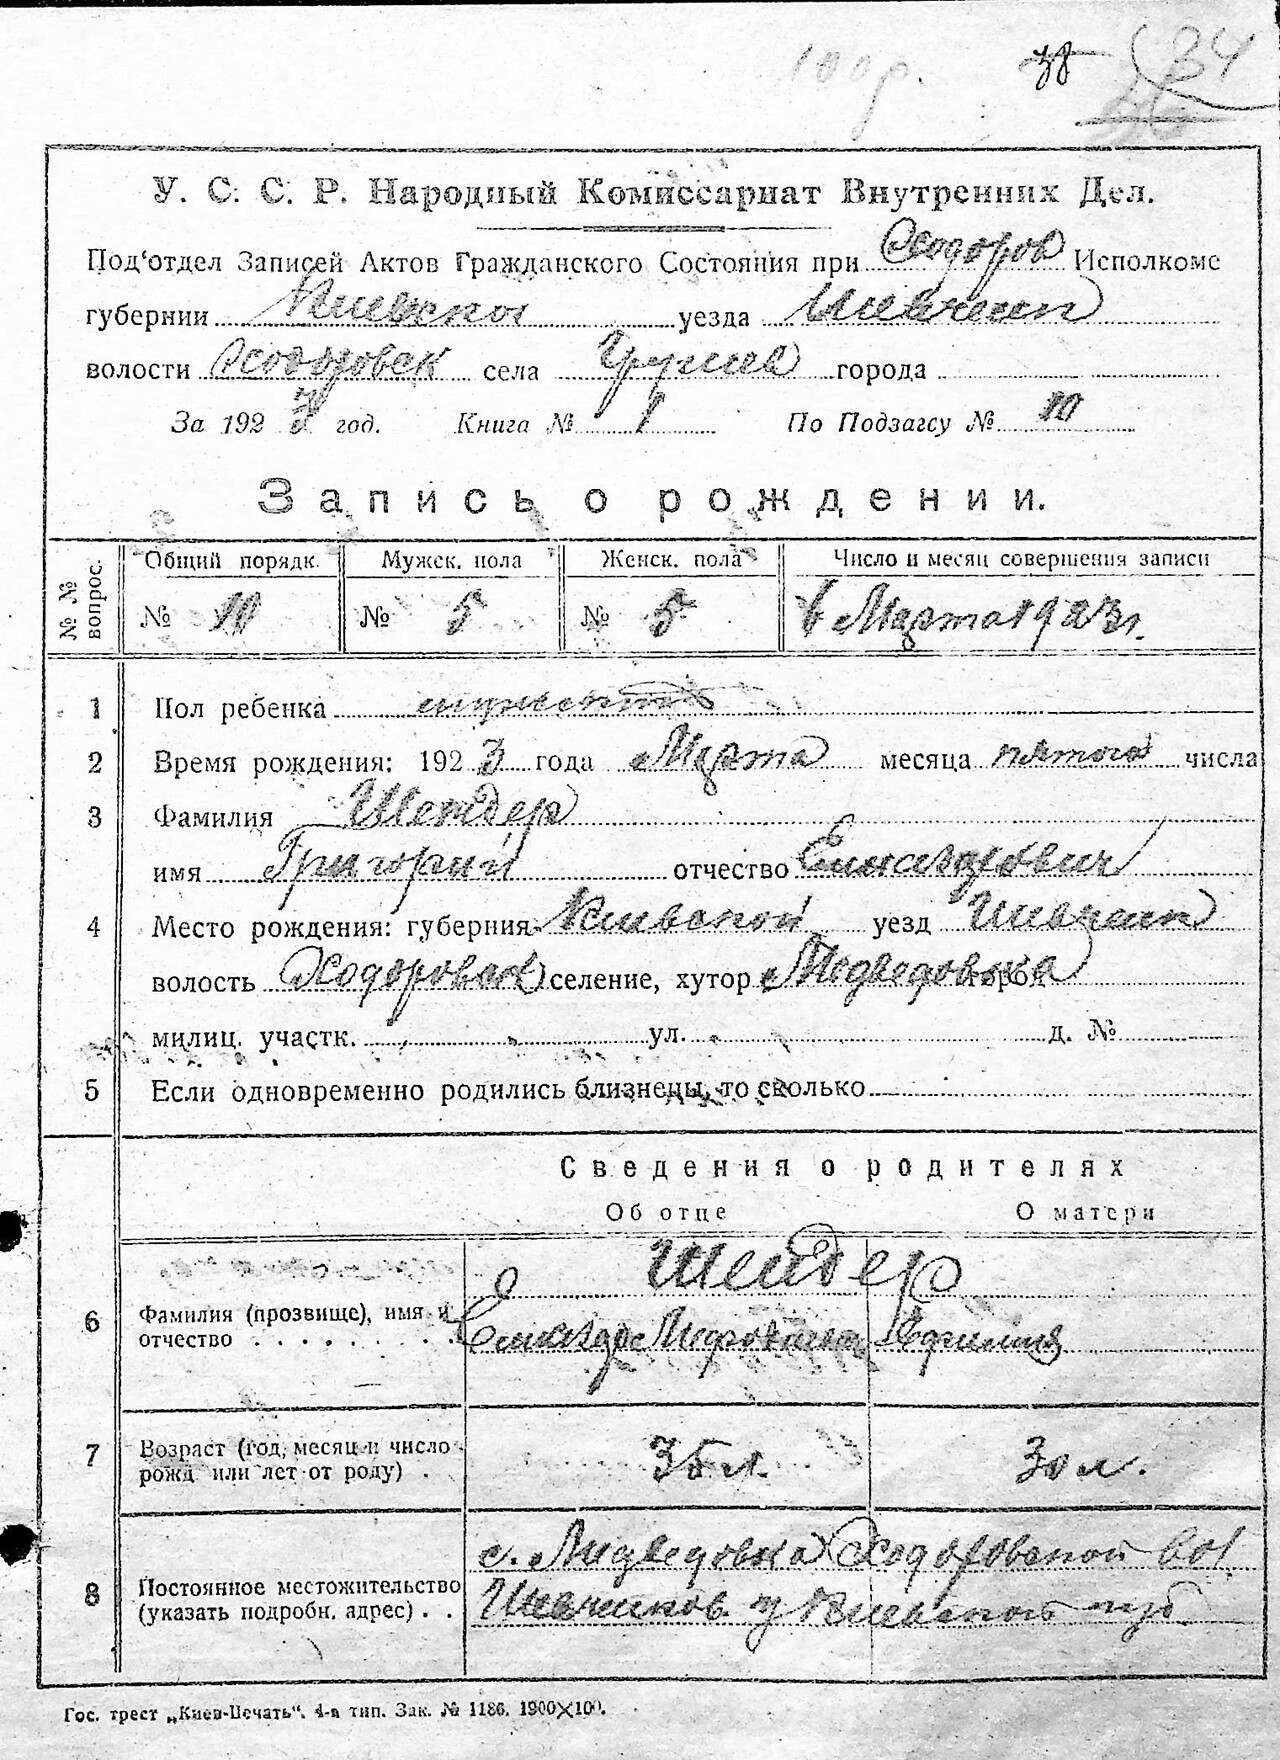 100р. 38 34
У. С. С. Р. Народный Комиссариат Внутренних Дел.
Под‘отдел Записей Актов Гражданского Состояния при Ходоров Исполкоме
губернии Киевской уезда Шевченк
волости Ходоровск села Грушев города
За 1923 год. Книга № 1 По Подзагсу № 10
Запись о рождении.
№ № вопрос. Общий порядк. Мужск. пола Женск. пола Число и месяц совершения записи
№ 10 № 5 № 5 6 Марта 1923 г.
1 Пол ребенка мужеский
2 Время рождения: 1923 года Марта месяца пятого числа
3 Фамилия Шендер
имя Григорий отчество
4 Место рождения: губерния Киевской уезд Шевченк
волость Ходоровск селение, хутор Медведовка город
милиц. участк. ул. д. №
5 Если одновременно родились близнецы, то сколько
Сведения о родителях
Об отце О матери
Шендер
6 Фамилия (прозвище), имя и
отчество
7 Возраст (год, месяц и число 35 л. 30 л.
рожд или лет от роду) .
с. Медведовка Ходоровской вол.
8 Постоянное местожительство
(указать подробн. адрес) . . Шевченков. у Киевской губ.
Гос. трест „Киев-Печать“. 4-я тип. Зак. № 1186. 1900×100.